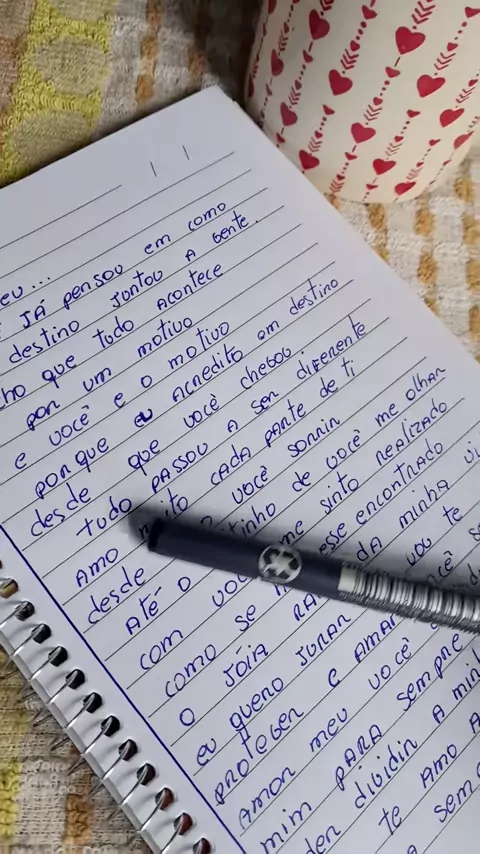 eu...
JÁ pensou em como
destino juntou A gente.
que tudo acontece
por um motivo
e você e o motivo
porque eu acredito em destino
desde que você chegou
tudo passou A ser diferente
Amo muito cada parte de ti
desde você sorrir
Até o de você me olhar
com você me sinto realizado
como se esse encontrado
o jóia da minha
eu quero jurar vou te
proteger e amar você
Amor meu você
mim para sempre
dividir A
te Amo A
sem